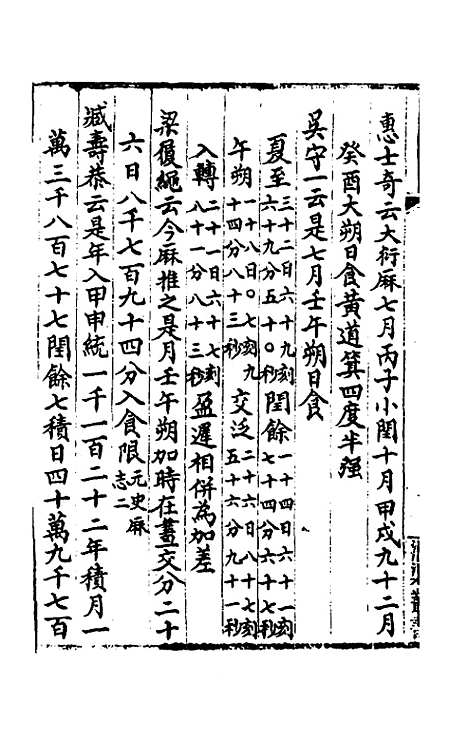 惠士奇云大衍厤七月丙子小閏十月甲戌九十二月
癸酉大朔日食黄道箕四度半强
吴守一云是七月壬午朔日食
夏至三十二日六十九刻六十九分五十〇秒閏餘一十四日六十一刻七十四分六十七秒
午朔一十八日〇七刻九十四分八十三秒交泛二十六日八十七刻五十六分九十一秒
入轉二十一日六十七刻八十一分八十三秒盈遲相併為加差
梁履繩云今厤推之是月壬午朔加時在晝交分二十
六日八千七百九十四分入食限元史厤志二
臧壽恭云是年入甲申統一千一百二十二年積月一
萬三千八百七十七閏餘七積日四十萬九千七百